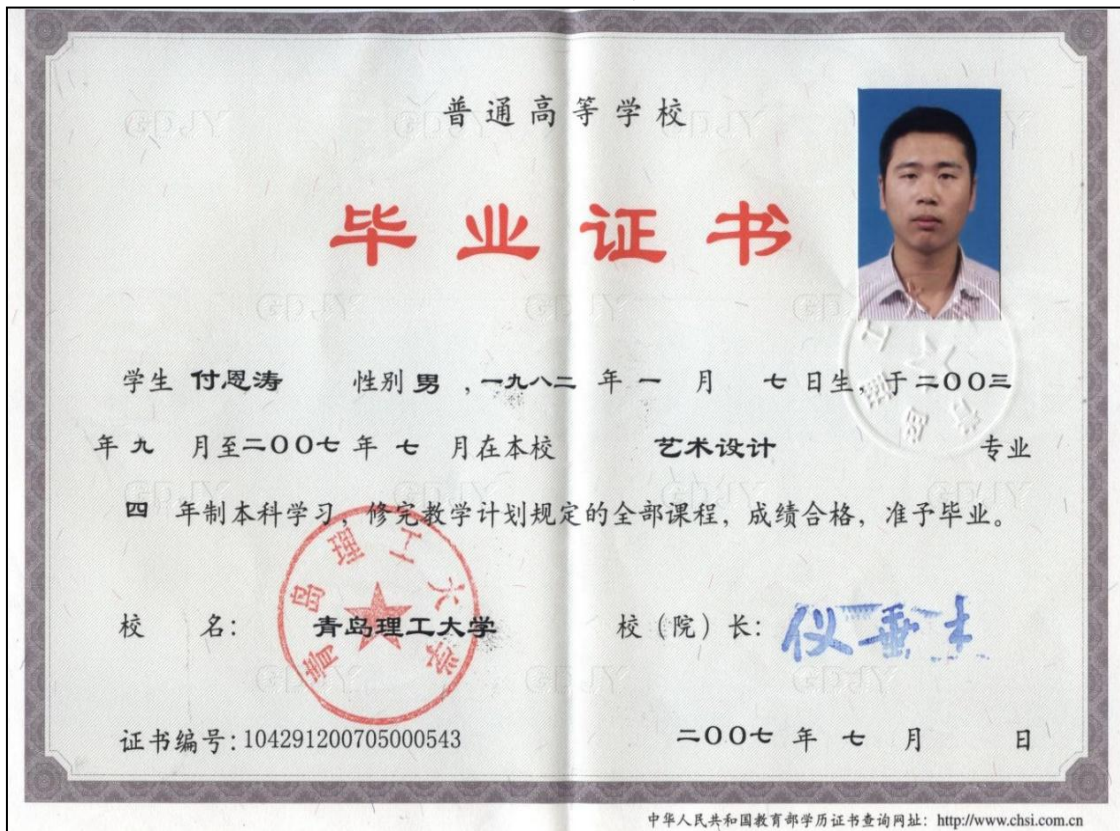 普通高等学校
毕业证书
学生 付恩涛 性别 男 ,一九八二 年 一 月 七 日生,于二〇〇三
年 九 月至二〇〇七 年 七 月在本校 艺术设计 专业
四 年制本科学习,修完教学计划规定的全部课程,成绩合格,准予毕业。
青岛理工大学
校 名: 青岛理工大学 校(院)长: 仪垂杰
证书编号:104291200705000543 二〇〇七 年 七 月 日
中华人民共和国教育部学历证书查询网址:http://www.chsi.com.cn
GDJY